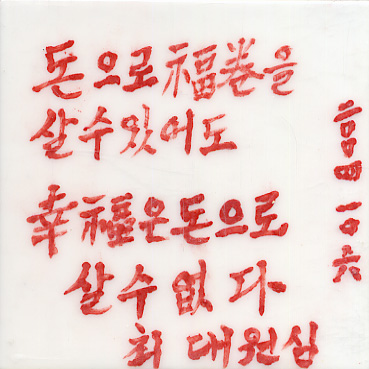 돈으로 福卷을
살수있어도
幸福은 돈으로
살수 없다.
최 대원심